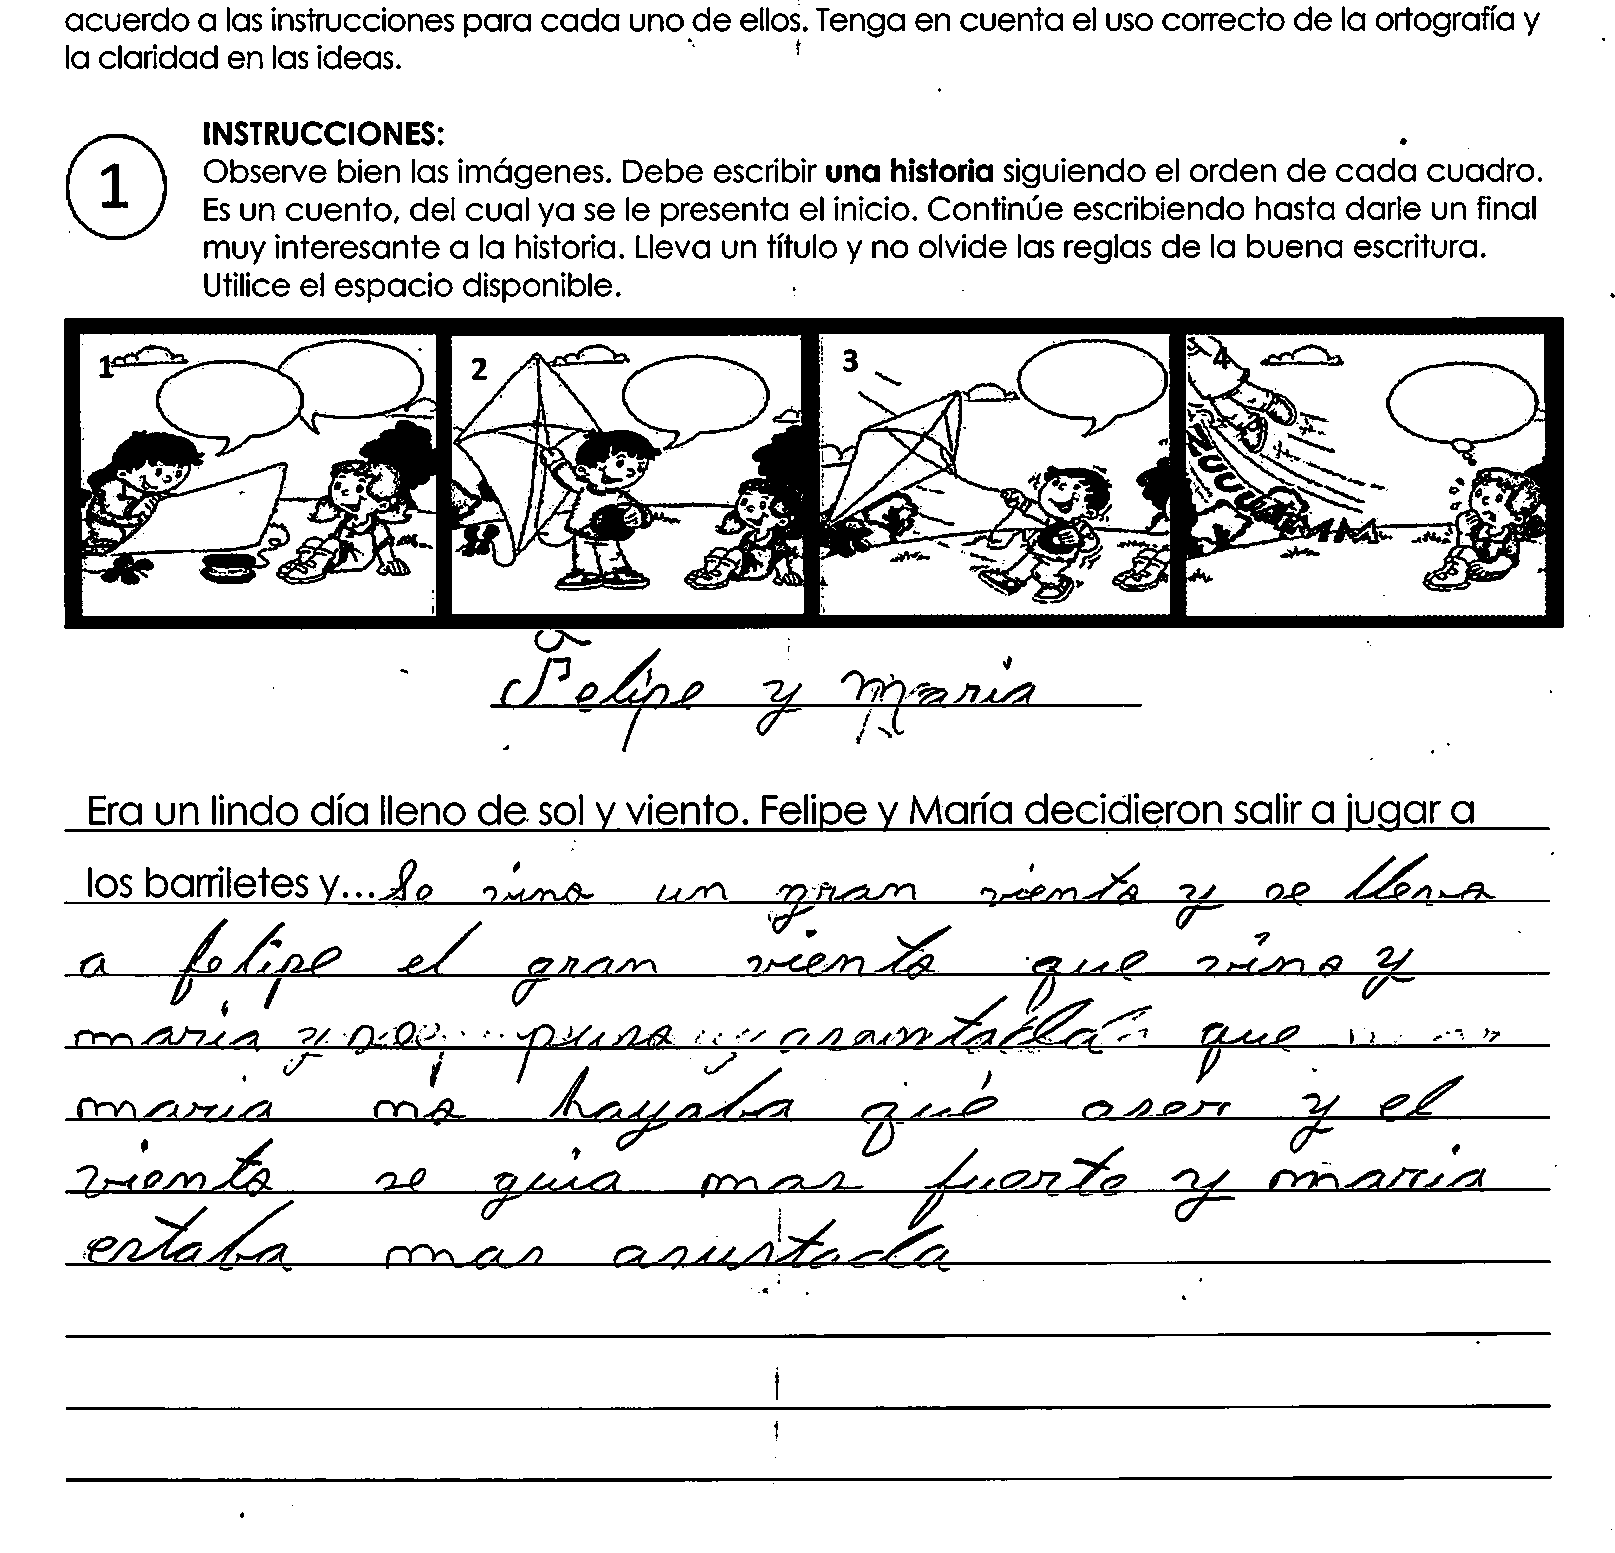 acuerdo a las instrucciones para cada uno de ellos. Tenga en cuenta el uso correcto de la ortografía y
la claridad en las ideas.
1
INSTRUCCIONES:
Observe bien las imágenes. Debe escribir una historia siguiendo el orden de cada cuadro.
Es un cuento, del cual ya se le presenta el inicio. Continúe escribiendo hasta darle un final
muy interesante a la historia. Lleva un título y no olvide las reglas de la buena escritura.
Utilice el espacio disponible.
1 2 3 4
ZUUUUMMM
Felipe y Maria
Era un lindo día lleno de sol y viento. Felipe y María decidieron salir a jugar a
los barriletes y... Se vino un gran viento y se lleva
a felipe el gran viento que vino y
maria y se puso que
maria no hayaba qué aser y el
viento se guia mas fuerte y maria
estaba mas asustada